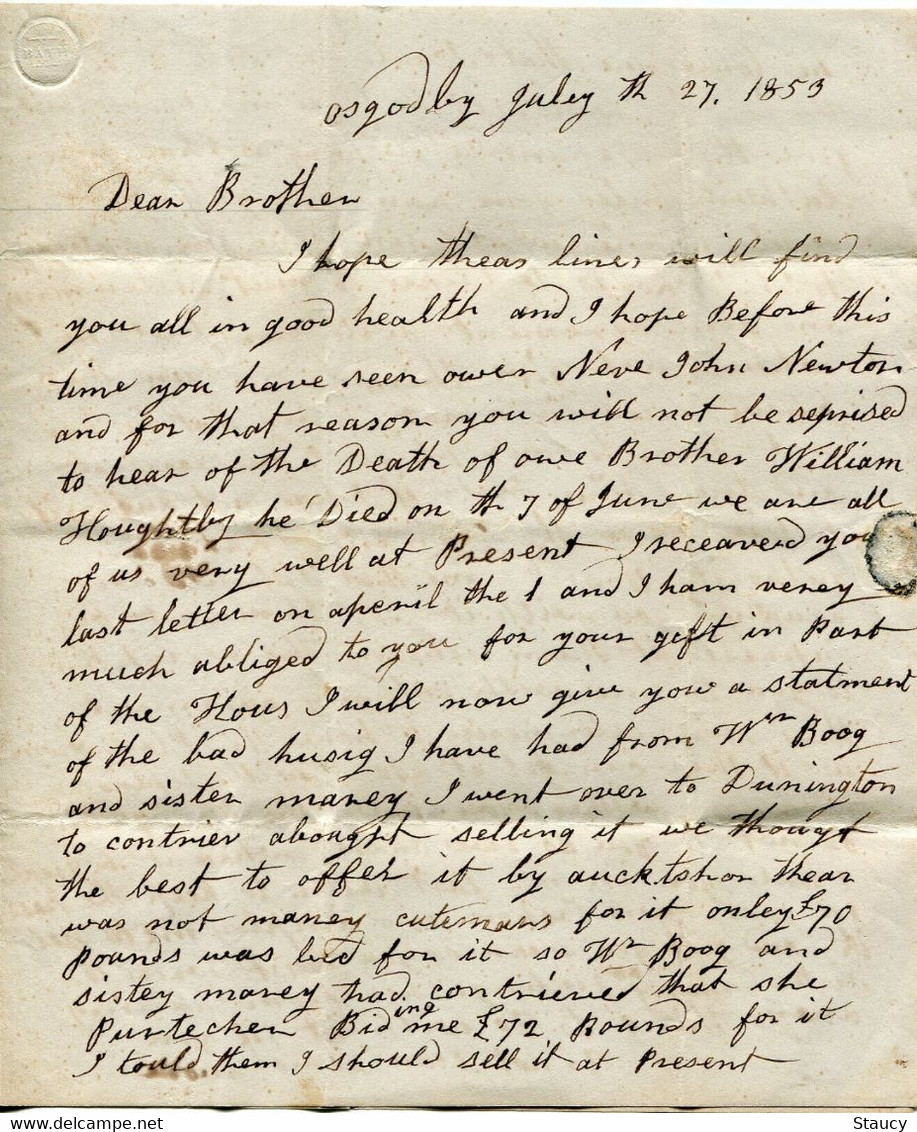 BATH
osgodby Juley th 27. 1853
Dear Brother
I hope theas lines will find
you all in good health and I hope Before this
time you have seen ower Neve John Newton
and for that reason you will not be seprised
to hear of the Death of owe Brother William
Houghtby he Died on th 7 of June we are all
of us very well at Present I receaved you
last letter on aperil the 1 and I ham verey
much abliged to you for your geft in Part
of the Hous I will now give yow a statment
of the bad husig I have had from Wm Boog
and sister marey I went over to Dunington
to contriev abought selling it we thougt
the best to offer it by aucktshon thear
was not maney cutemars for it onley £70
pounds was bid for it so Wm Boog and
sistey marey had contrieved that she
Purtechen Biding me £72 Pounds for it
I tould them I should sell it at Present
Staucy